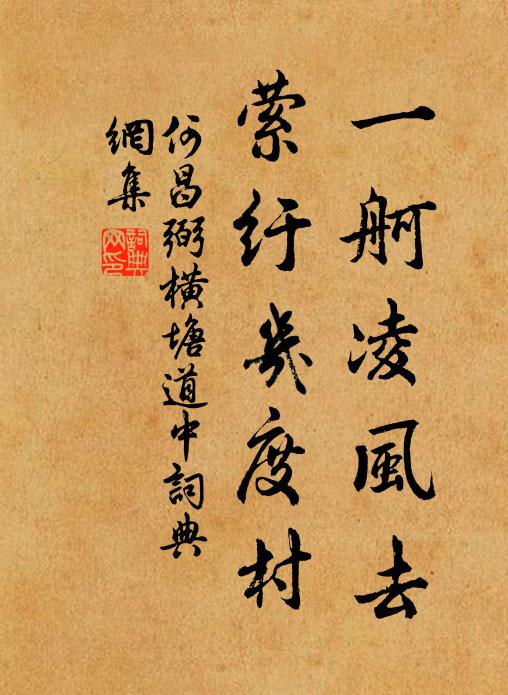 一舸凌風去
縈紆幾度村
何昌弼橫塘道中詞典
網集
詞典網印